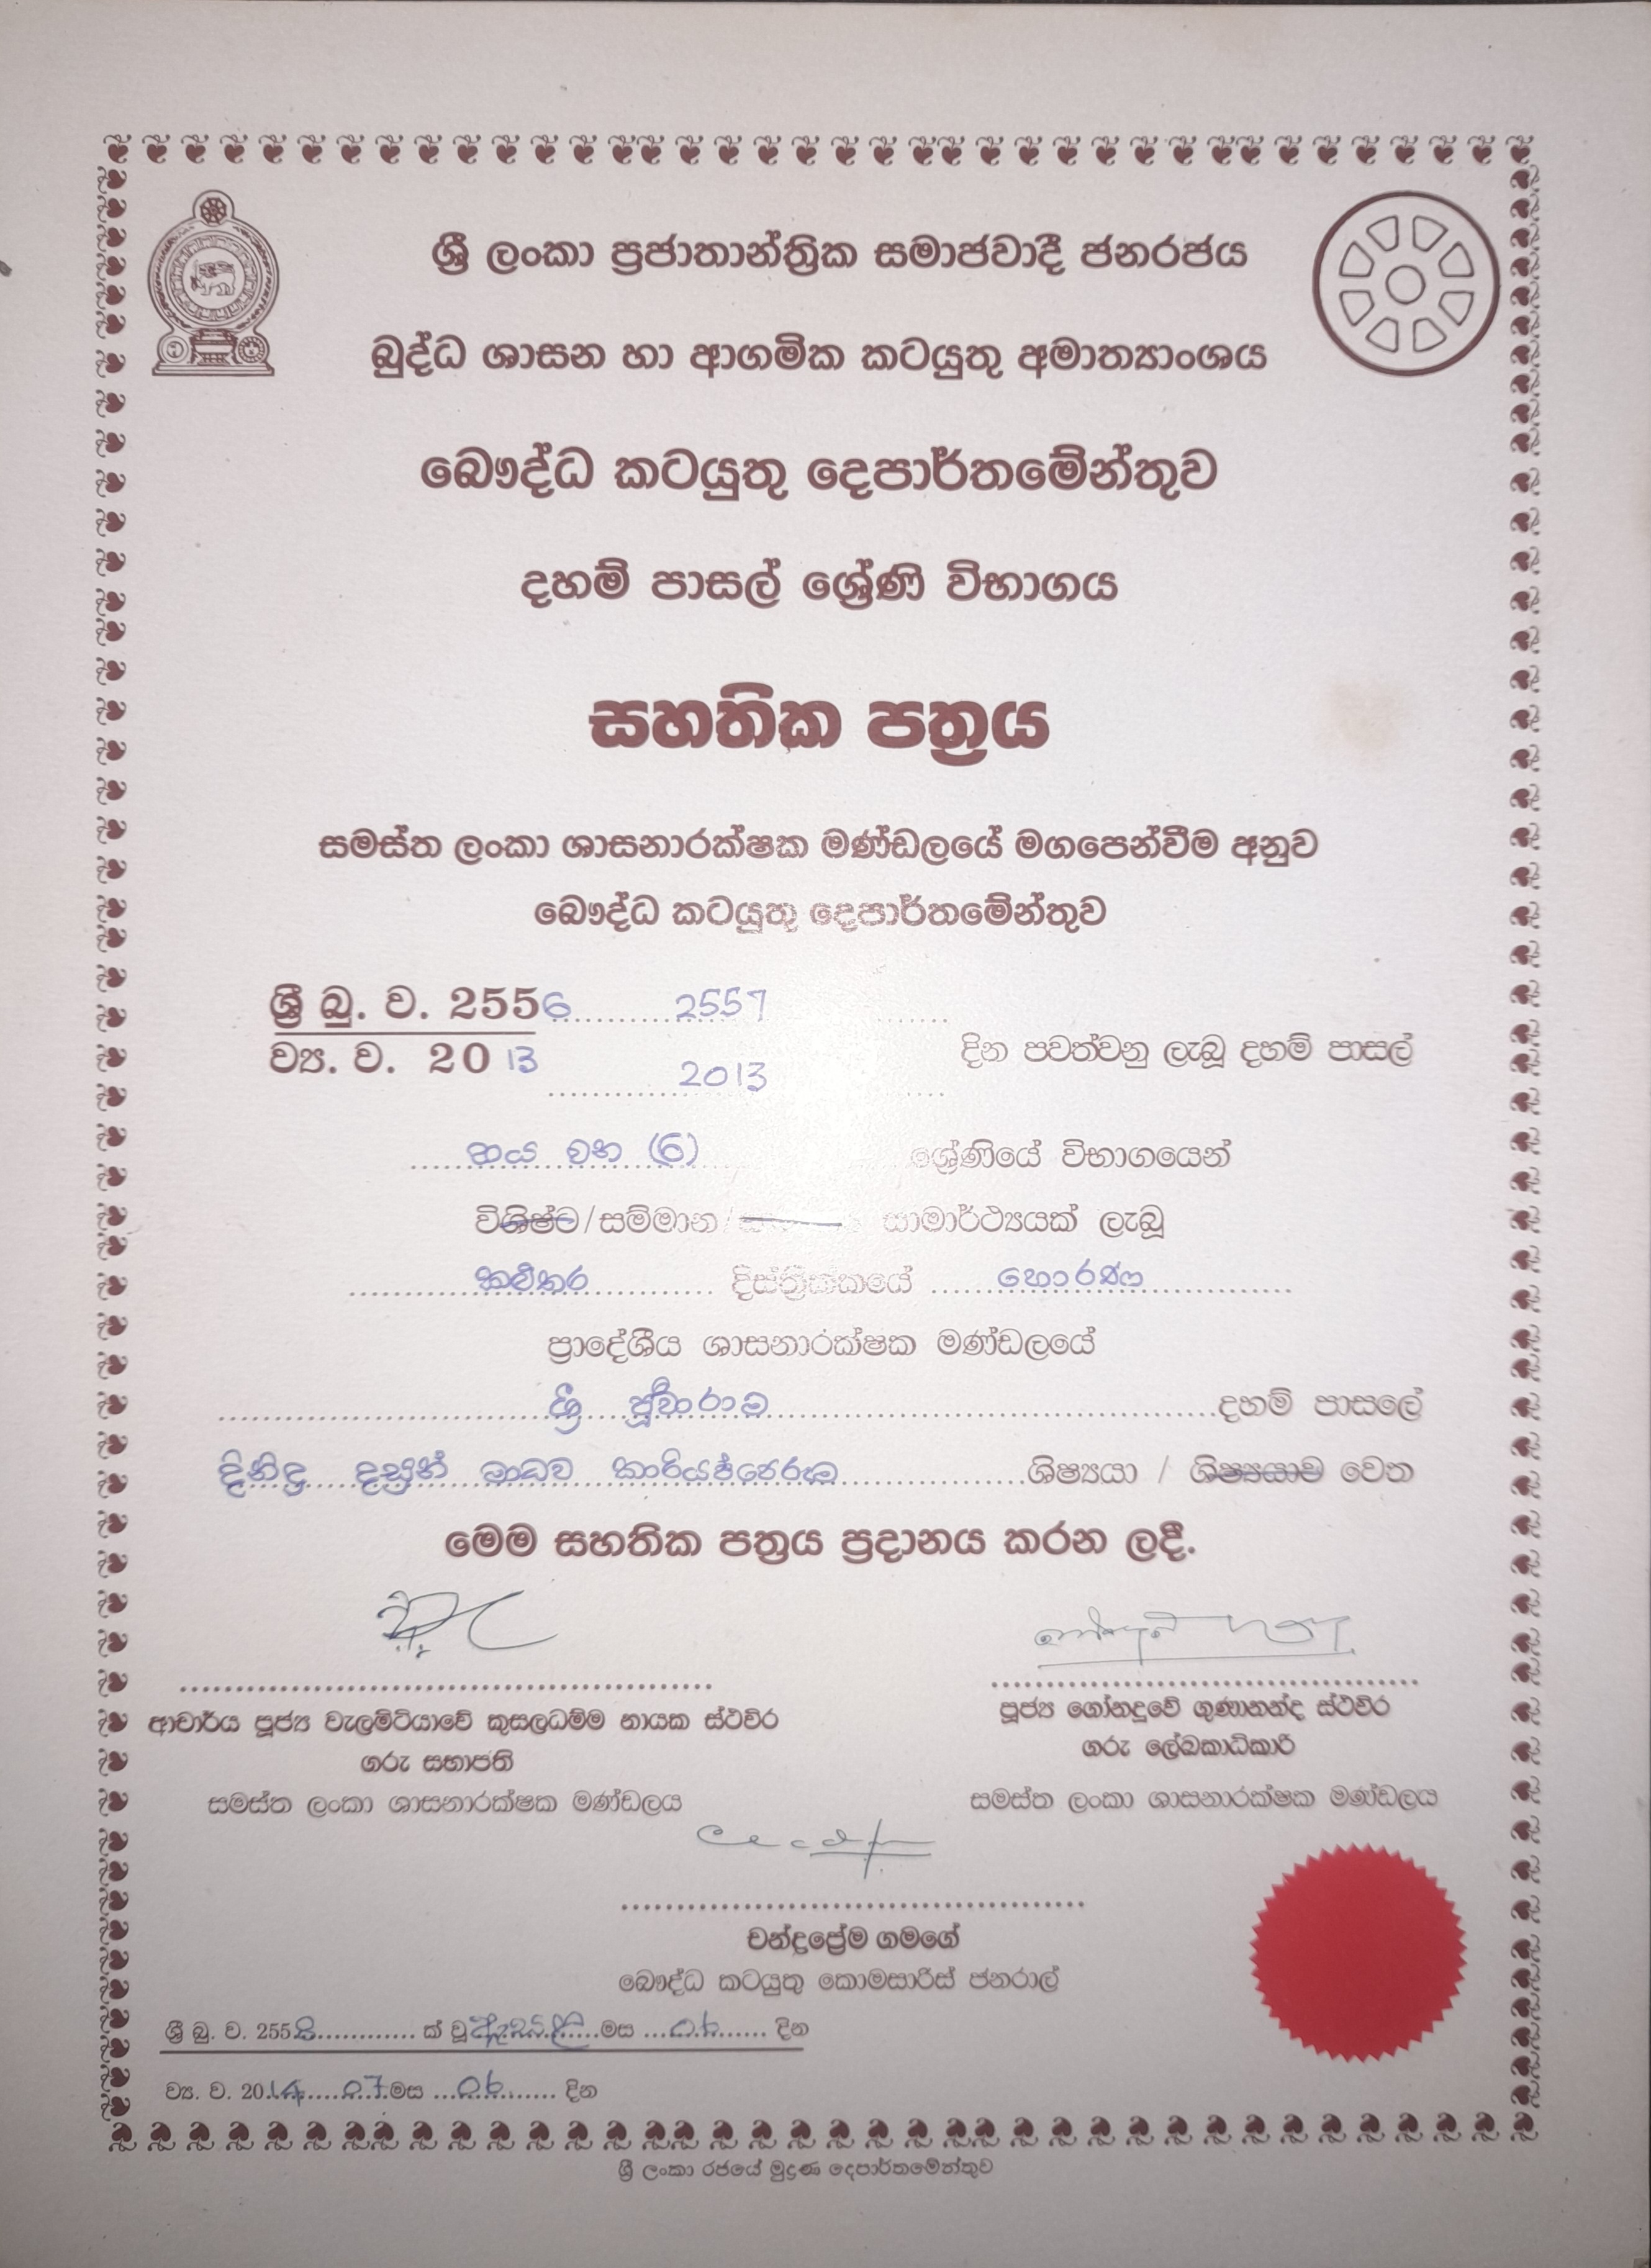 ශ්‍රී ලංකා ප්‍රජාතාන්ත්‍රික සමාජවාදී ජනරජය
බුද්ධ ශාසන හා ආගමික කටයුතු අමාත්‍යාංශය
බෞද්ධ කටයුතු දෙපාර්තමේන්තුව
දහම් පාසල් ශ්‍රේණි විභාගය
සහතික පත්‍රය
සමස්ත ලංකා ශාසනාරක්ෂක මණ්ඩලයේ මගපෙන්වීම අනුව
බෞද්ධ කටයුතු දෙපාර්තමේන්තුව
ශ්‍රී බු. ව. 2556 2557
ව්‍ය. ව. 2013 2013 දින පවත්වනු ලැබූ දහම් පාසල්
හය වන (6) ශ්‍රේණියේ විභාගයෙන්
විශිෂ්ට/සම්මාන/ සාමාර්ථ්‍යයක් ලැබූ
කළුතර දිස්ත්‍රික්කයේ හොරණ
ප්‍රාදේශීය ශාසනාරක්ෂක මණ්ඩලයේ
ශ්‍රී දහම් පාසලේ
දිනිඳු දසුන් මාධව කාරියප්පෙරුම ශිෂ්‍යයා / ශිෂ්‍යයාව වෙත
මෙම සහතික පත්‍රය ප්‍රදානය කරන ලදී.
ආචාර්ය පූජ්‍ය වැලමිටියාවේ කුසලධම්ම නායක ස්ථවිර
ගරු සභාපති
සමස්ත ලංකා ශාසනාරක්ෂක මණ්ඩලය
පූජ්‍ය ගෝනදූවේ ගුණානන්ද ස්ථවිර
ගරු ලේඛකාධිකාරී
සමස්ත ලංකා ශාසනාරක්ෂක මණ්ඩලය
චන්ද්‍රප්‍රේම ගමගේ
බෞද්ධ කටයුතු කොමසාරිස් ජනරාල්
ශ්‍රී බු. ව. 2558 ක් වූ ඇසළ මස 06 දින
ව්‍ය. ව. 2014 07 මස 06 දින
ශ්‍රී ලංකා රජයේ මුද්‍රණ දෙපාර්තමේන්තුව